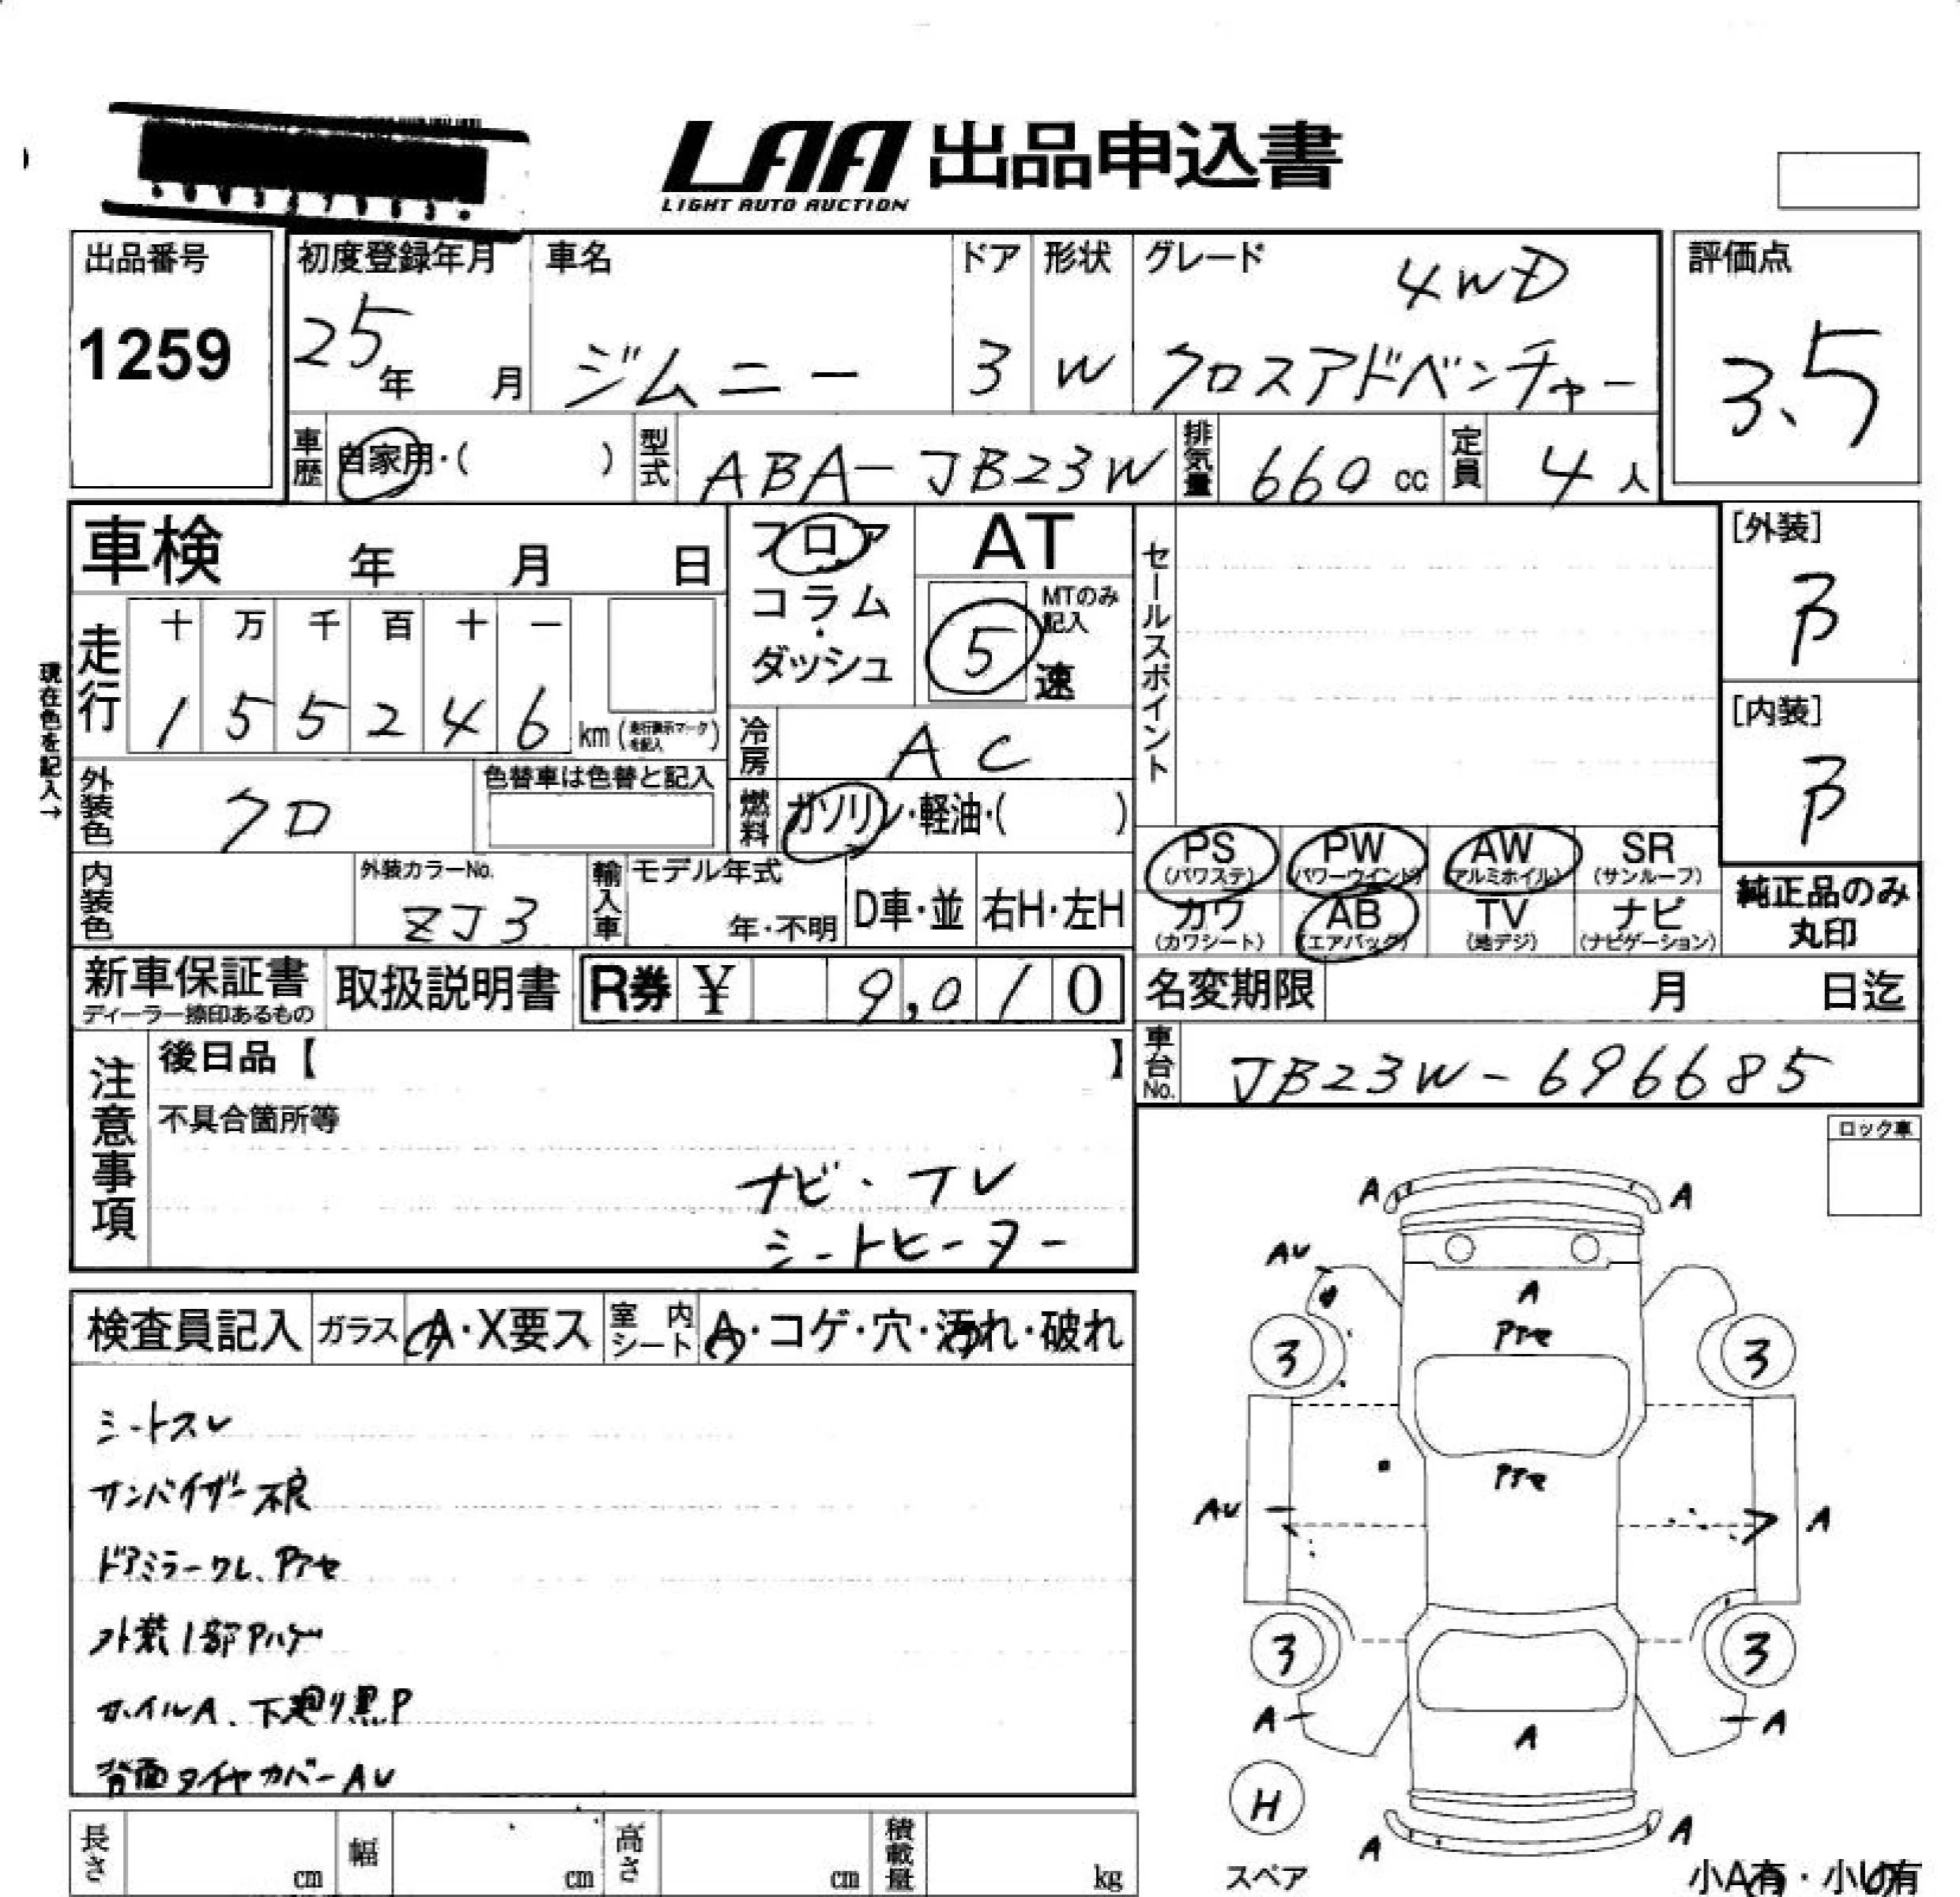 LAA 出品申込書
LIGHT AUTO AUCTION
出品番号
1259
初度登録年月
25年 月
車名
ジムニー
ドア
3
形状
W
グレード
4WD
クロスアドベンチャー
評価点
3.5
車歴 自家用・( )
型式 ABA-JB23W
排気量 660 cc
定員 4 人
車検 年 月 日
フロア
コラム
・
ダッシュ
AT
MTのみ記入
5 速
セールスポイント
[外装]
B
[内装]
B
現在色を記入→
走行
十 万 千 百 十 一
1 5 5 2 4 6 km (走行表示マークを記入)
冷房 AC
外装色 クロ
色替車は色替と記入
燃料 ガソリン・軽油・( )
PS (パワステ)
PW (パワーウインド)
AW (アルミホイル)
SR (サンルーフ)
カワ (カワシート)
AB (エアバッグ)
TV (地デジ)
ナビ (ナビゲーション)
純正品のみ
丸印
内装色
外装カラーNo.
ZJ3
輸入車
モデル年式
年・不明
D車・並
右H・左H
新車保証書
ディーラー捺印あるもの
取扱説明書
R券 ¥ 9,010
名変期限 月 日迄
車台No. JB23W-696685
注意事項
後日品【 】
不具合箇所等
ナビ・テレ
シートヒーター
ロック車
検査員記入
ガラス A・X要ス
室内シート A・コゲ・穴・汚れ・破れ
シートスレ
サンバイザー不良
ドアミラークレ、Pアセ
外装1部Pハゲ
ホイルA、下廻り黒P
背面タイヤカバーAU
A A
AU
A
Pアセ
3 3
Pアセ
AU A
3 3
A A
A
H
スペア
A A
小A有・小U有
長さ cm
幅 cm
高さ cm
積載量 kg